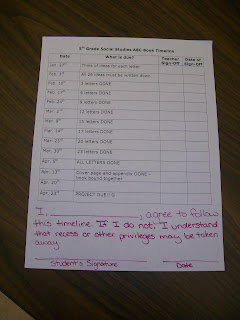 5th Grade Social Studies ABC Book Timeline
Date What is due? Teacher Sign-Off Date of Sign-Off
Jan. Three ideas for each letter
Feb. 1st All 26 ideas must be written down
Feb. 3 letters DONE
Feb. 6 letters DONE
Feb. 9 letters DONE
Mar. 12 letters DONE
Mar. 8th 15 letters DONE
Mar. 14th 17 letters DONE
Mar. 20 letters DONE
Mar. 23 letters DONE
Apr. ALL LETTERS DONE
Apr. Cover page and appendix DONE –
book bound together
Apr.
Apr. PROJECT DUE!!
I, , agree to follow
this timeline. If I do not, I understand
that recess or other privileges may be taken
away.
Student's Signature Date